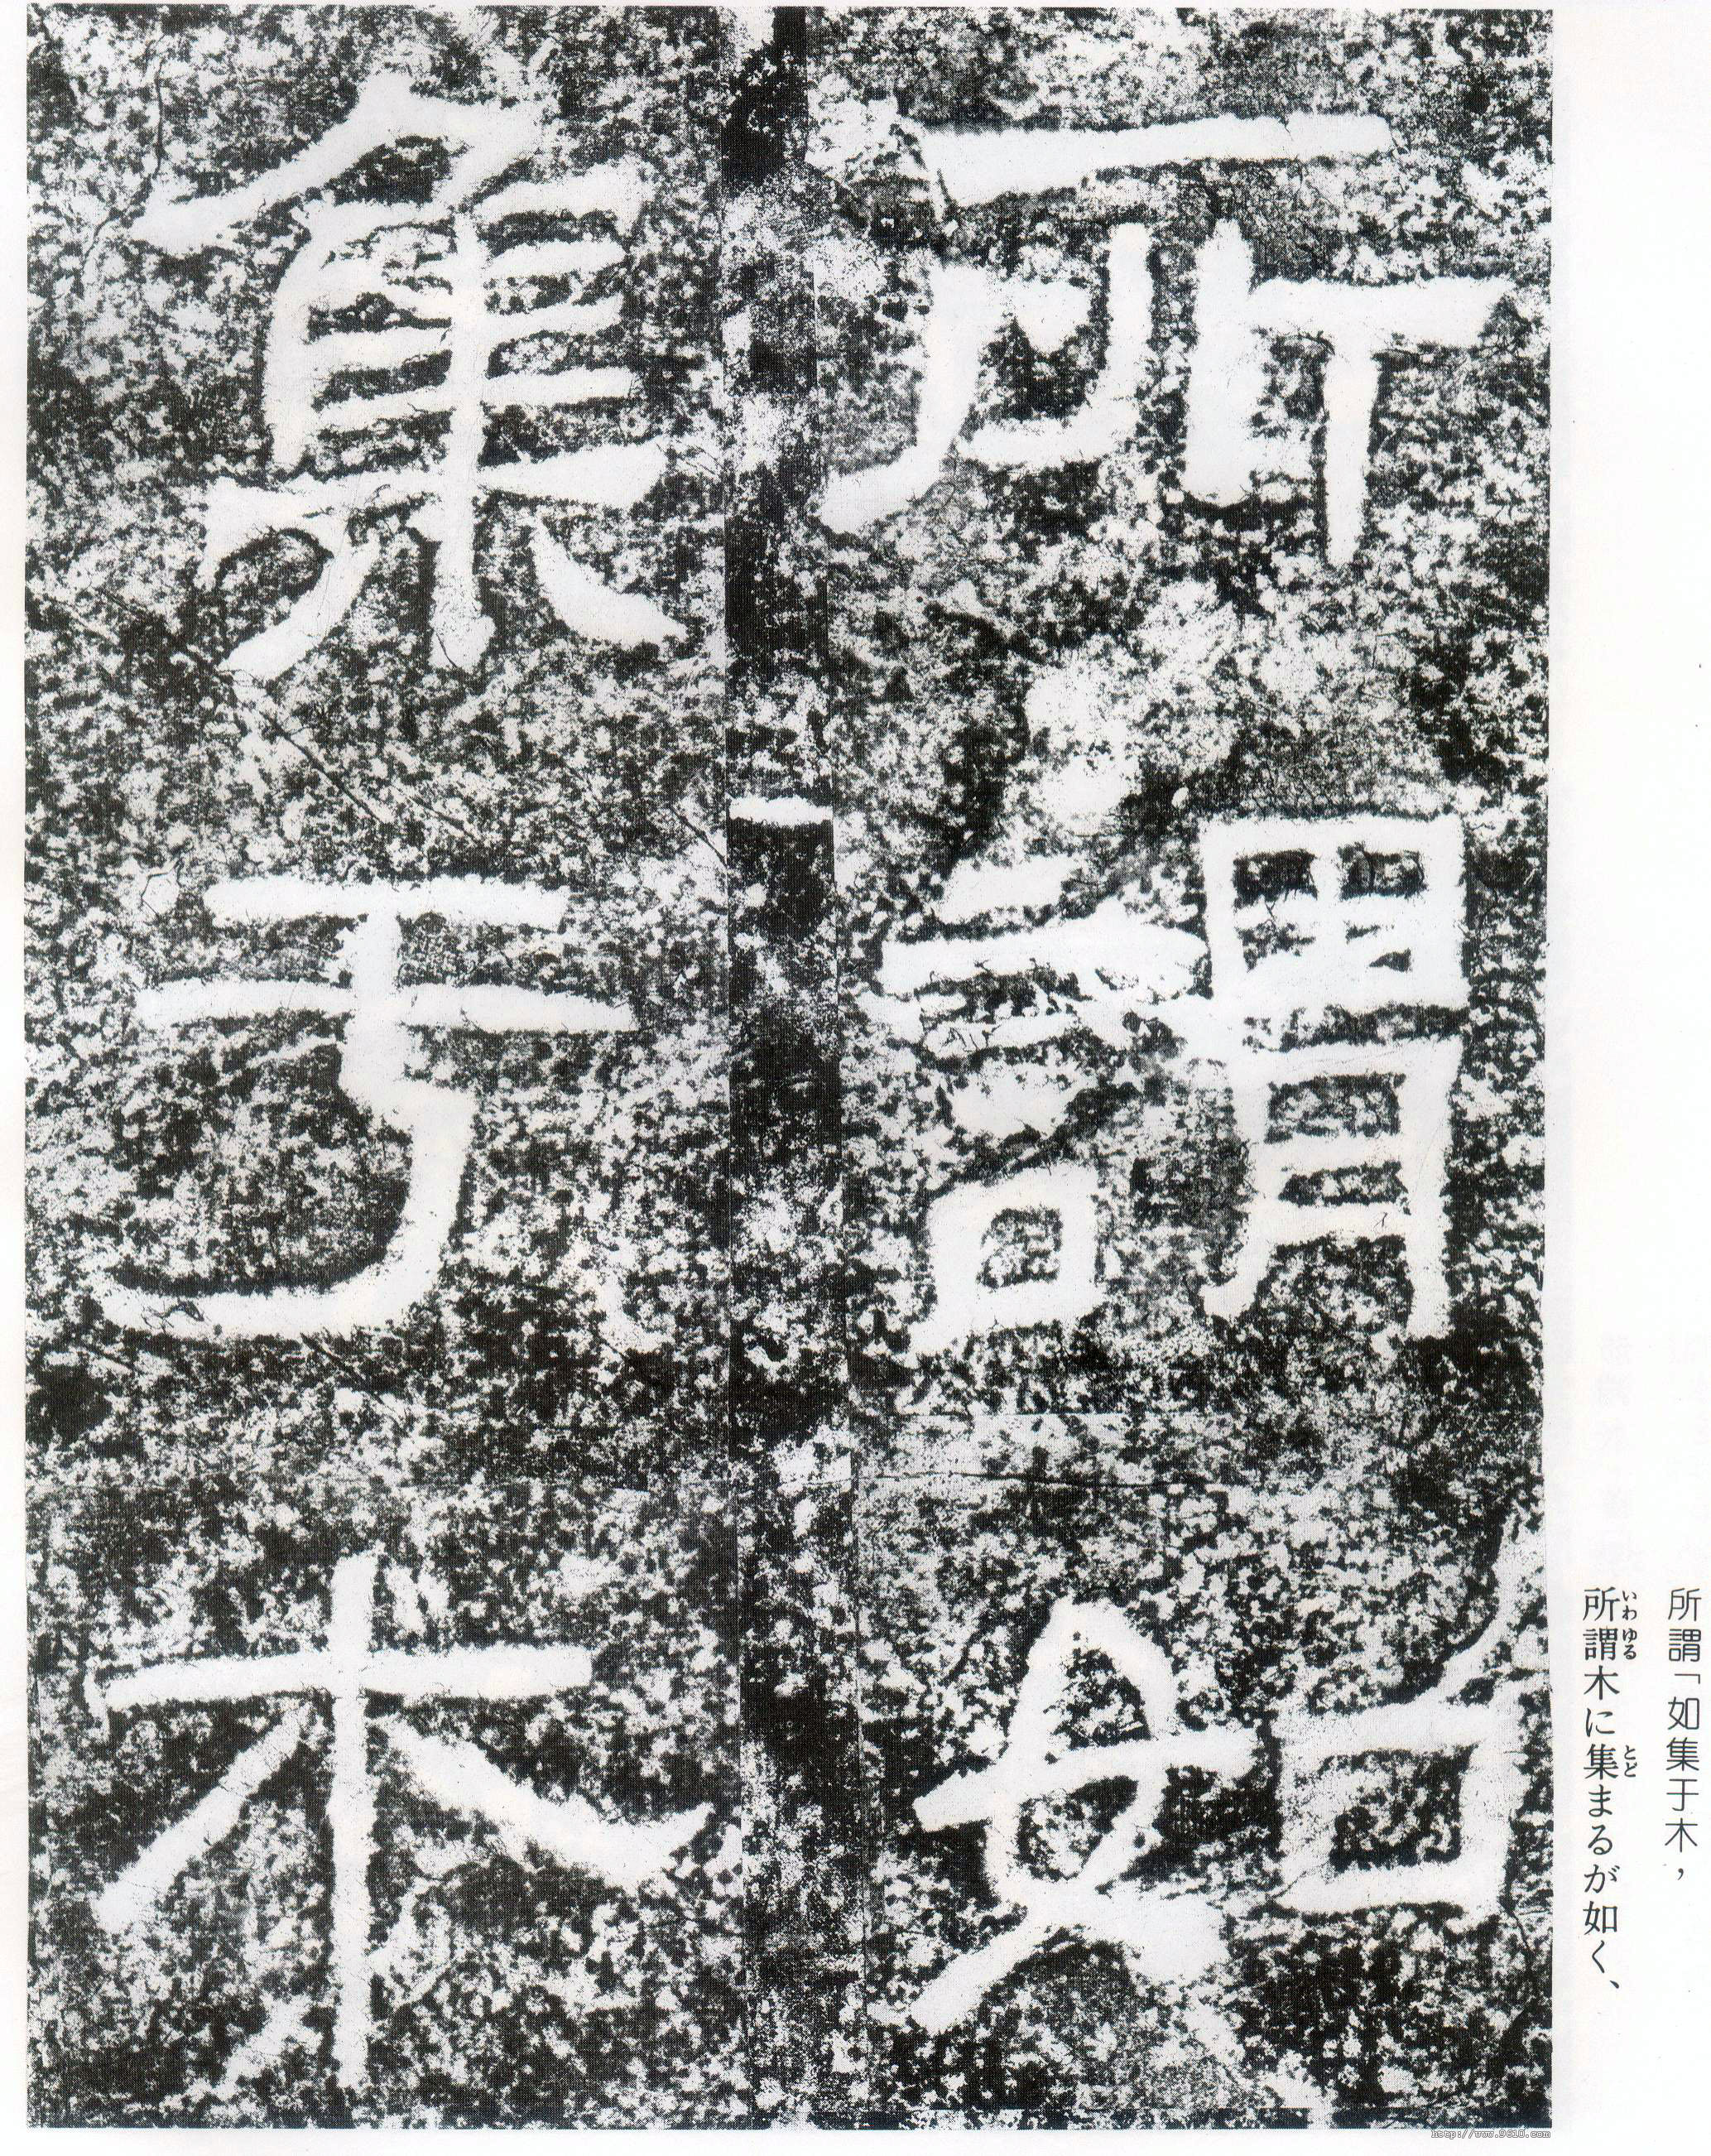 所謂如
集于木
所謂「如集于木，
所謂木に集まるが如く、
いわゆる
とど
http://www.9610.com